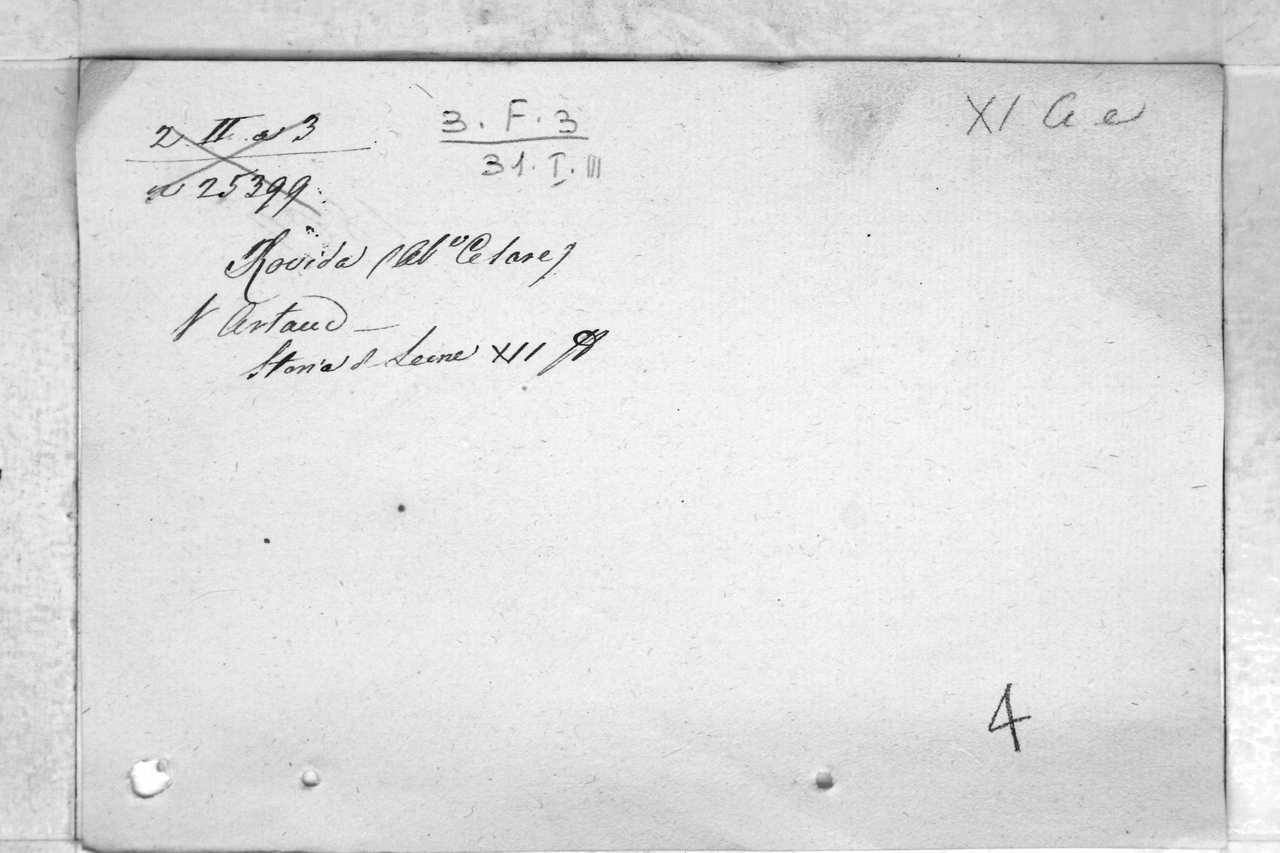 2 II a 3
a 25399
3. F. 3
31. I. III
XI A e
Rovida (Ab.º Cesare)
V Artaud —
Storia di Leone XII
4